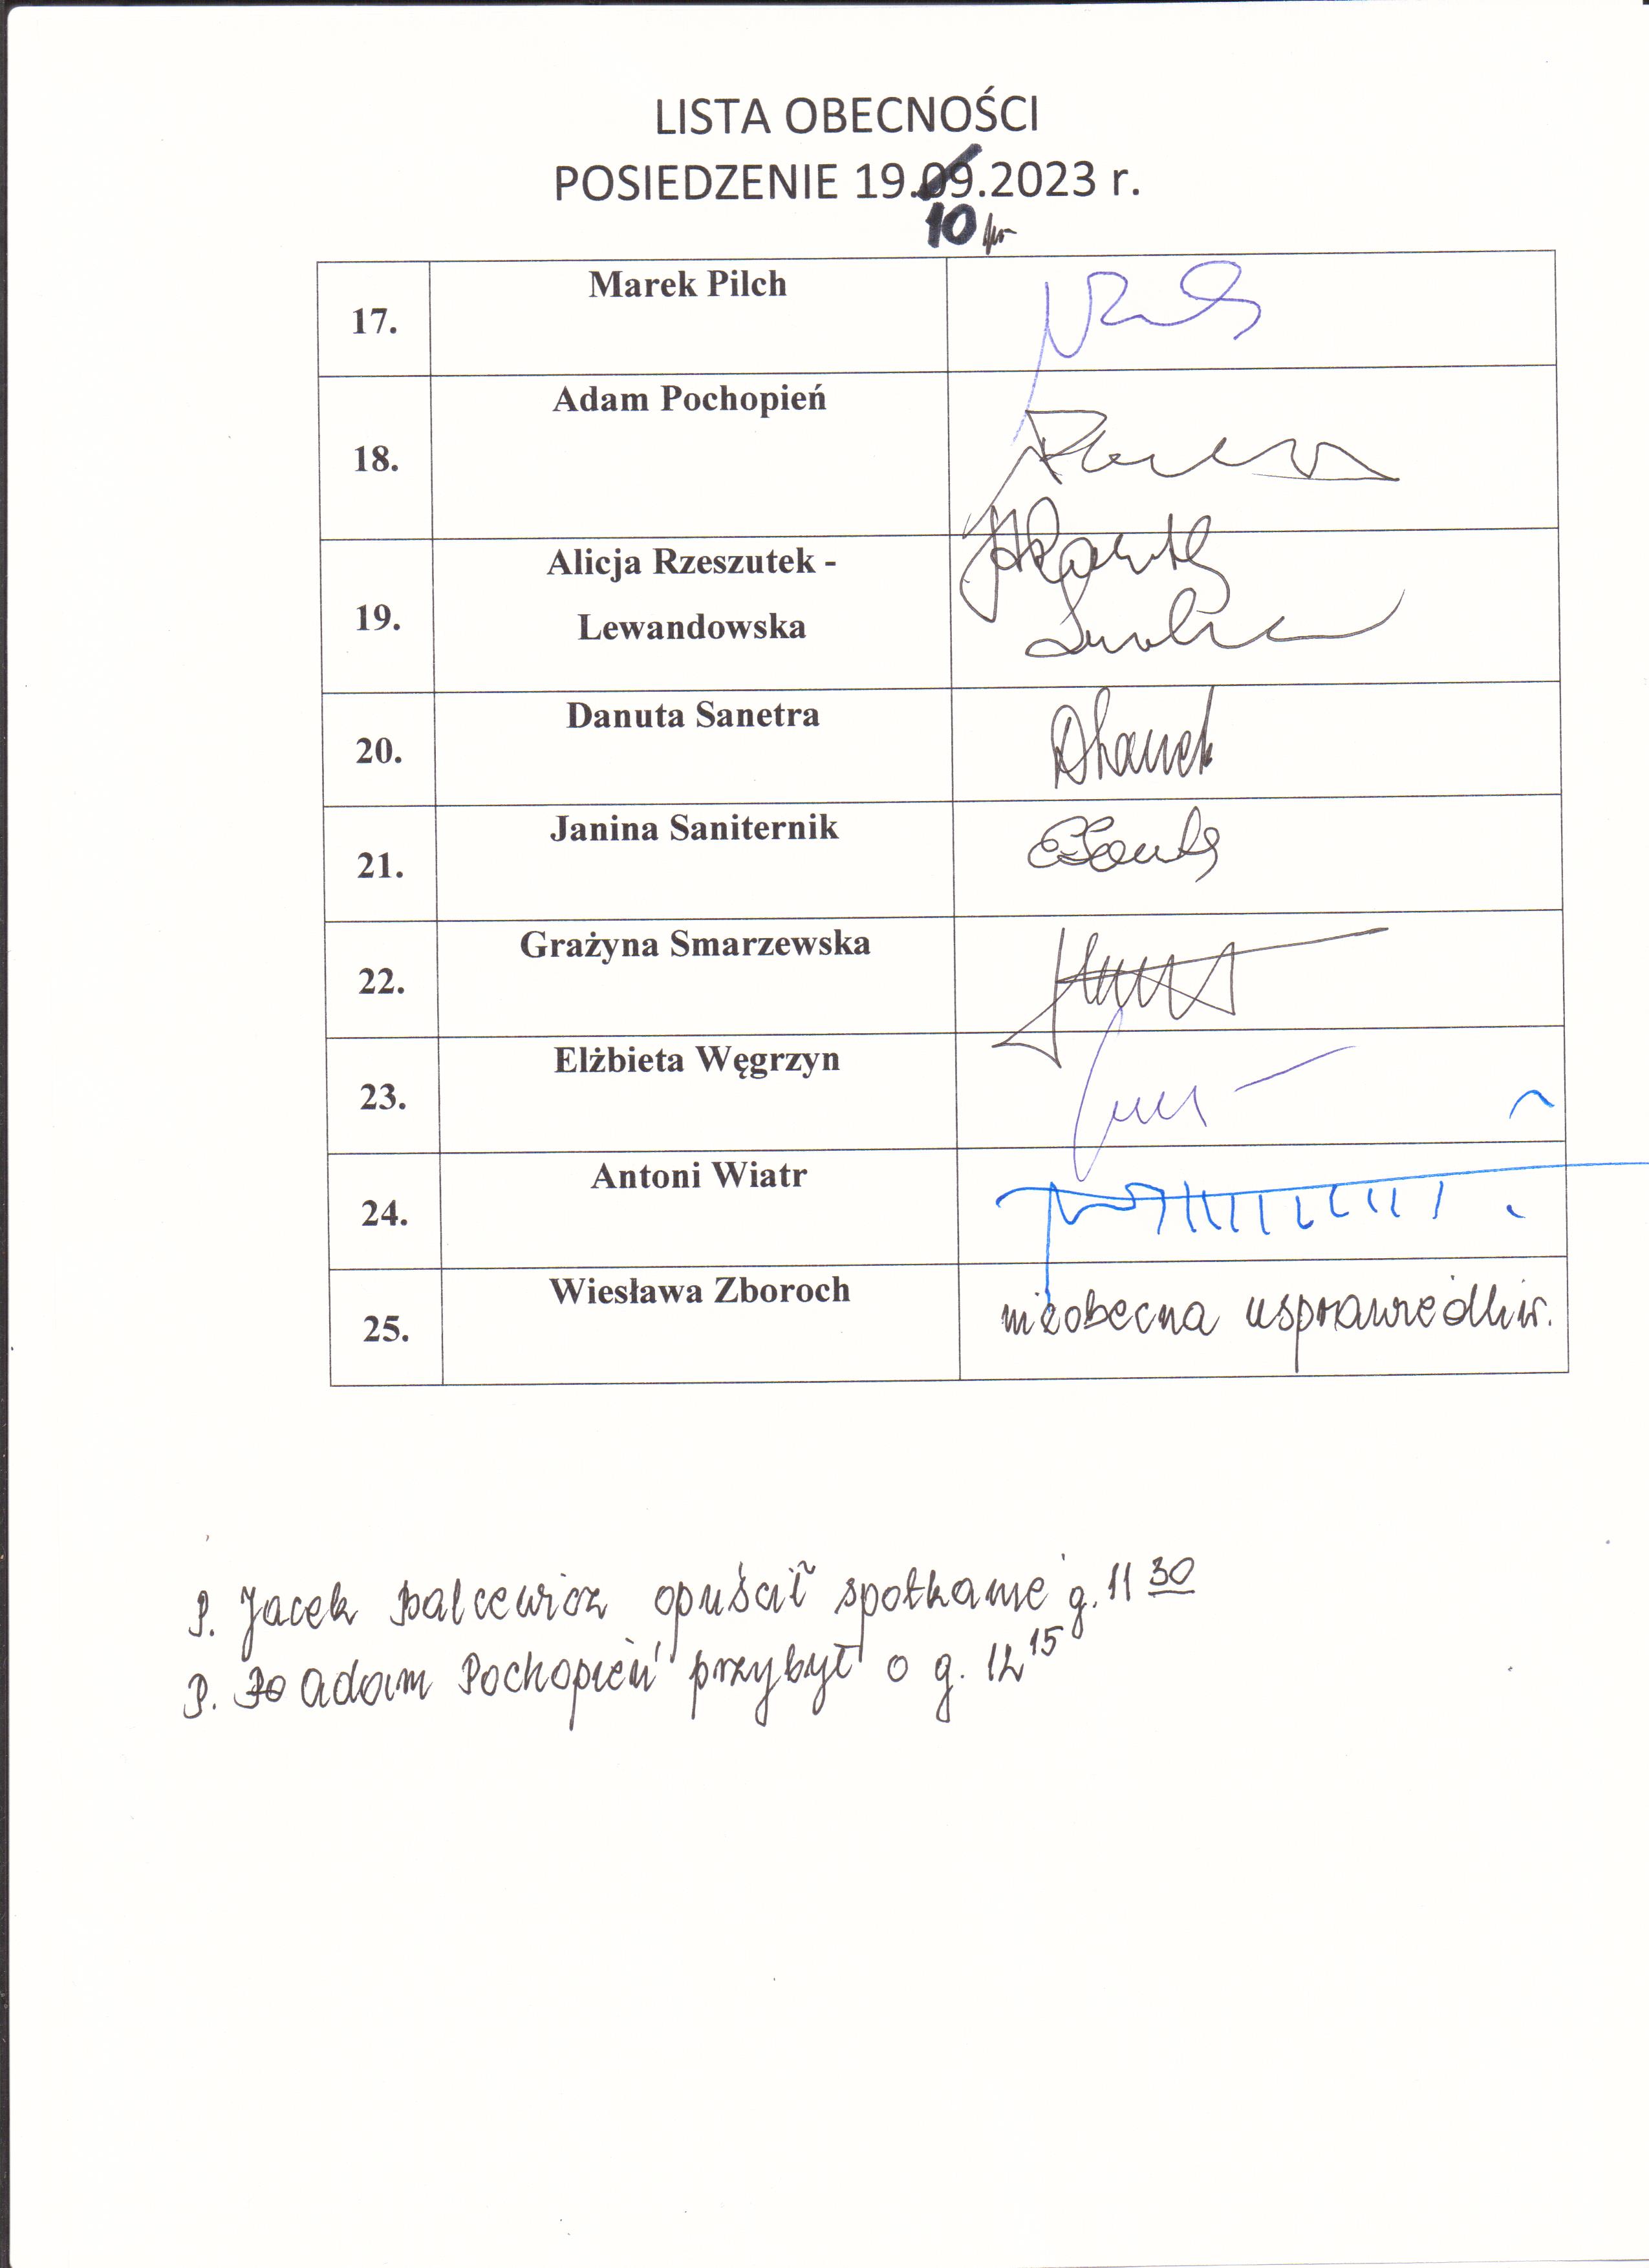 LISTA OBECNOŚCI
POSIEDZENIE 19.09.2023 r.
10
17. Marek Pilch
18. Adam Pochopień
19. Alicja Rzeszutek -
Lewandowska
20. Danuta Sanetra
21. Janina Saniternik
22. Grażyna Smarzewska
23. Elżbieta Węgrzyn
24. Antoni Wiatr
25. Wiesława Zboroch nieobecna usprawiedliw.
P. Jacek Balcewicz opuścił spotkanie g. 11 30
P. Adam Pochopień przybył o g. 12 15